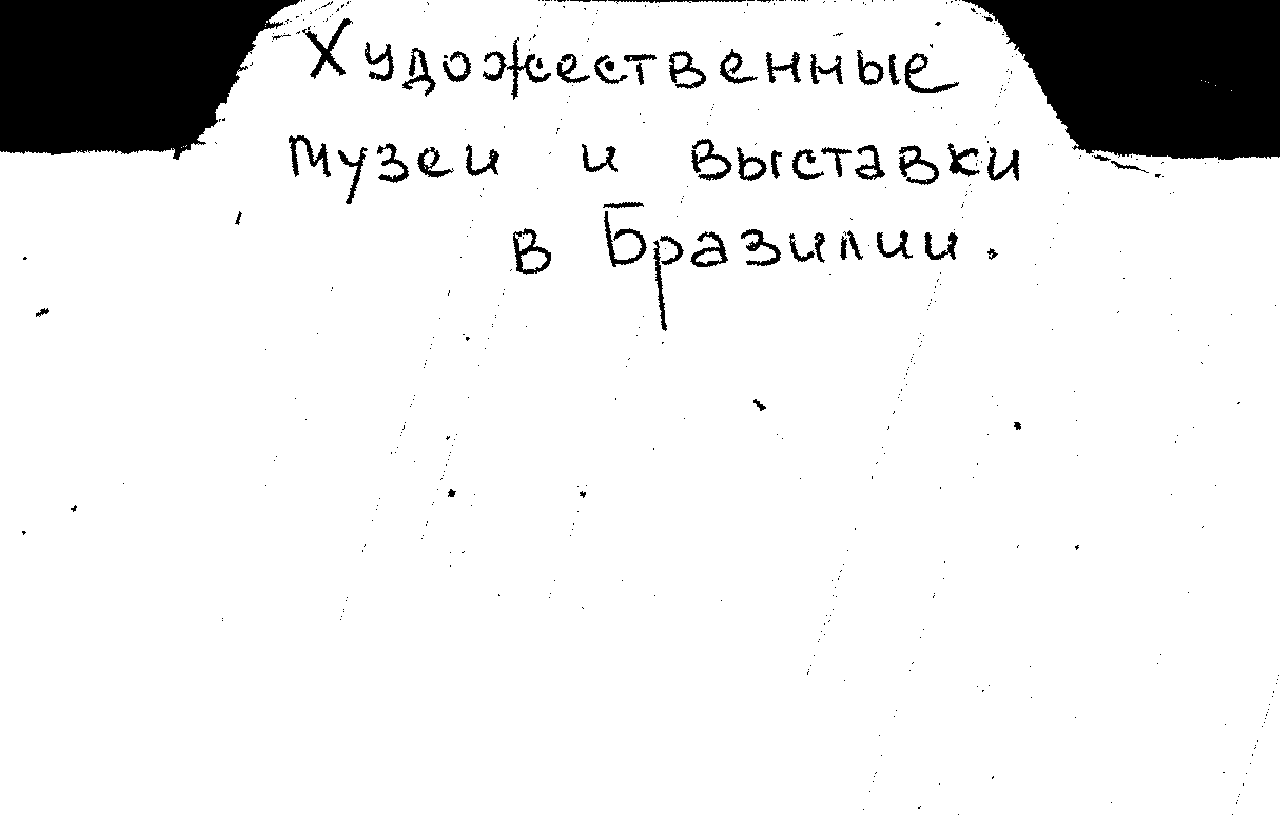 Художественные
музеи и выставки
в Бразилии.